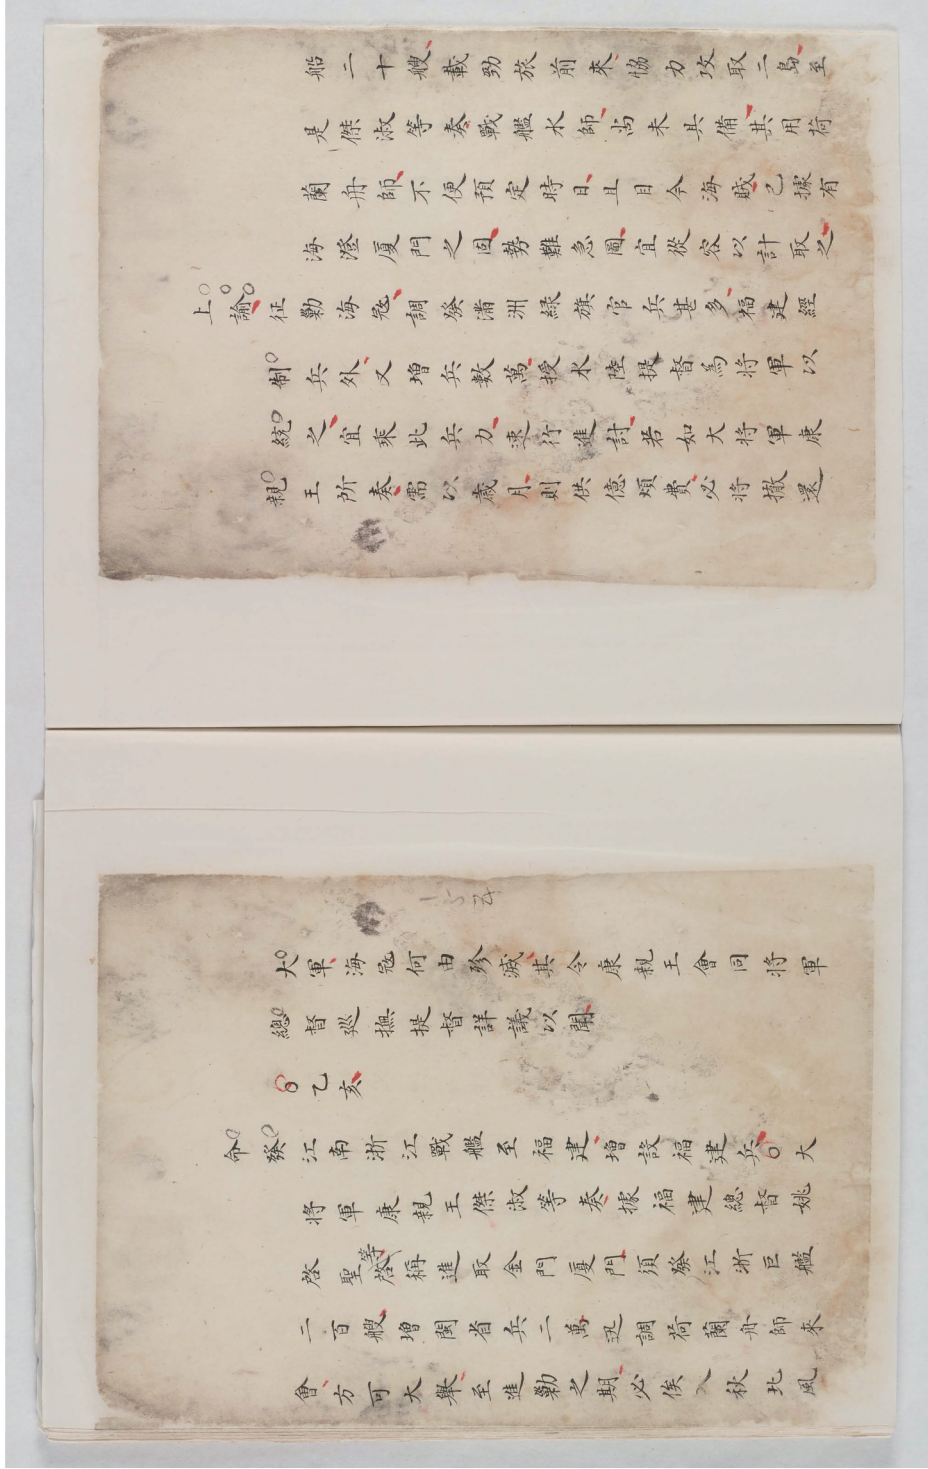 船二十艘載勁旅前來恊力攻取二島至
是傑淑等奏戰艦水師尚未具備其用荷
蘭舟師不便預定時日且目今海賊已據有
海澄厦門之固勢難急圖宜從容以計取之
上諭征勦海寇調發滿洲緑旗官兵甚多福建經
制兵外又增兵數萬授水陸提督為將軍以
統之宜乘此兵力速行進討若如大將軍康
親王所奏需以歲月則供億煩費必將撤還
大軍海寇何由殄滅其令康親王會同將軍
總督廵撫提督詳議以聞
乙亥
命發江南浙江戰艦至福建增設福建兵大
將軍康親王傑淑等奏據福建總督姚
啓聖等稱進取金門厦門須發江浙巨艦
二百艘增閩省兵二萬迅調荷蘭舟師來
會方可大舉至進勦之期必俟入秋北風